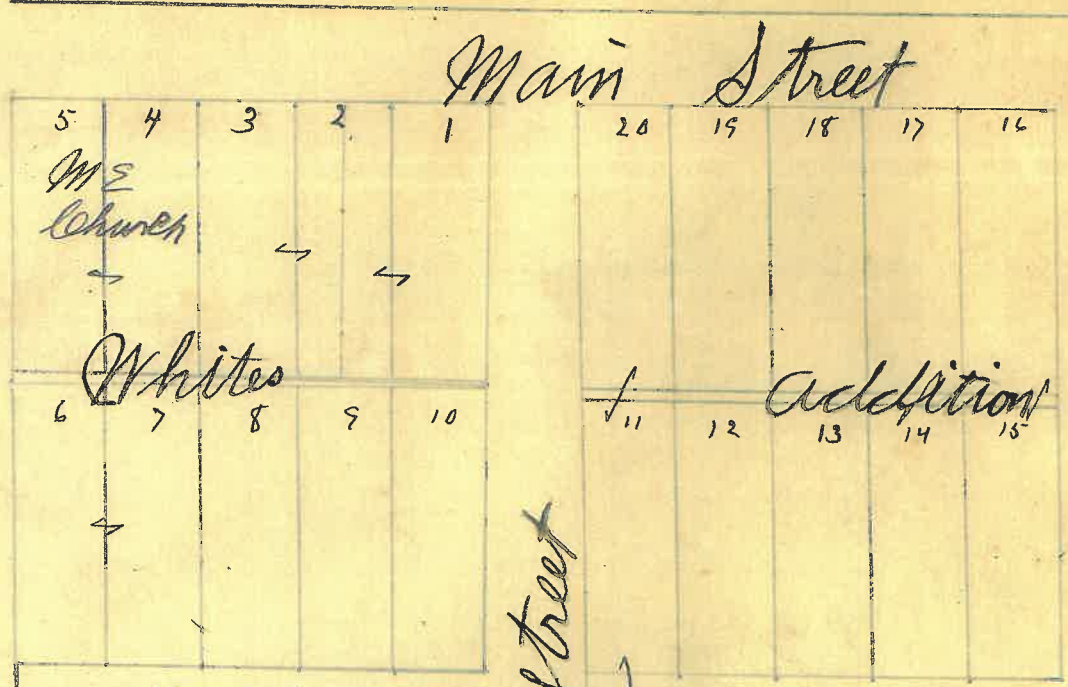 Main Street
5 4 3 2 1 20 19 18 17 16
ME
Church
Whites addition
6 7 8 9 10 11 12 13 14 15
Street